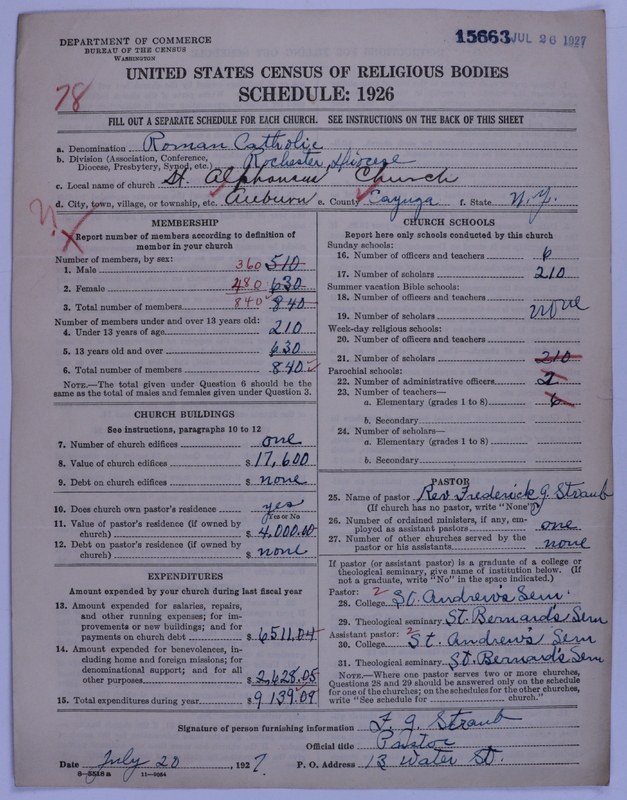 DEPARTMENT OF COMMERCE
BUREAU OF THE CENSUS
WASHINGTON
15663 JUL 26 1927
UNITED STATES CENSUS OF RELIGIOUS BODIES
SCHEDULE: 1926
78
FILL OUT A SEPARATE SCHEDULE FOR EACH CHURCH. SEE INSTRUCTIONS ON THE BACK OF THIS SHEET
a. Denomination Roman Catholic
b. Division (Association, Conference, Diocese, Presbytery, Synod, etc.) Rochester Diocese
c. Local name of church St. Alphonsus Church
d. City, town, village, or township, etc. Auburn e. County Cayuga f. State N.Y.
MEMBERSHIP
Report number of members according to definition of member in your church
Number of members, by sex:
1. Male 360 510
2. Female 480 630
3. Total number of members 840 840
Number of members under and over 13 years old:
4. Under 13 years of age 210
5. 13 years old and over 630
6. Total number of members 840
NOTE.—The total given under Question 6 should be the same as the total of males and females given under Question 3.
CHURCH BUILDINGS
See instructions, paragraphs 10 to 12
7. Number of church edifices one
8. Value of church edifices $ 17,600
9. Debt on church edifices $ none
10. Does church own pastor's residence yes
Yes or No
11. Value of pastor's residence (if owned by church) $ 4,000.00
12. Debt on pastor's residence (if owned by church) $ none
EXPENDITURES
Amount expended by your church during last fiscal year
13. Amount expended for salaries, repairs, and other running expenses; for improvements or new buildings; and for payments on church debt $ 6511.04
14. Amount expended for benevolences, including home and foreign missions; for denominational support; and for all other purposes $ 2,628.05
15. Total expenditures during year $ 9139.09
CHURCH SCHOOLS
Report here only schools conducted by this church
Sunday schools:
16. Number of officers and teachers 6
17. Number of scholars 210
Summer vacation Bible schools:
18. Number of officers and teachers
19. Number of scholars none
Week-day religious schools:
20. Number of officers and teachers
21. Number of scholars 210
Parochial schools:
22. Number of administrative officers 2
23. Number of teachers—
a. Elementary (grades 1 to 8) 6
b. Secondary
24. Number of scholars—
a. Elementary (grades 1 to 8)
b. Secondary
PASTOR
25. Name of pastor Rev. Frederick G. Straub
(If church has no pastor, write "None")
26. Number of ordained ministers, if any, employed as assistant pastors one
27. Number of other churches served by the pastor or his assistants none
If pastor (or assistant pastor) is a graduate of a college or theological seminary, give name of institution below. (If not a graduate, write "No" in the space indicated.)
Pastor: 2
28. College St. Andrew's Sem.
29. Theological seminary St. Bernard's Sem
Assistant pastor: 2
30. College St. Andrew's Sem
31. Theological seminary St. Bernard's Sem
NOTE.—Where one pastor serves two or more churches, Questions 28 and 29 should be answered only on the schedule for one of the churches; on the schedules for the other churches, write "See schedule for church."
Signature of person furnishing information F. G. Straub
Official title Pastor
Date July 20, 1927. P. O. Address 13 Water St.
8—5518 a 11—9034